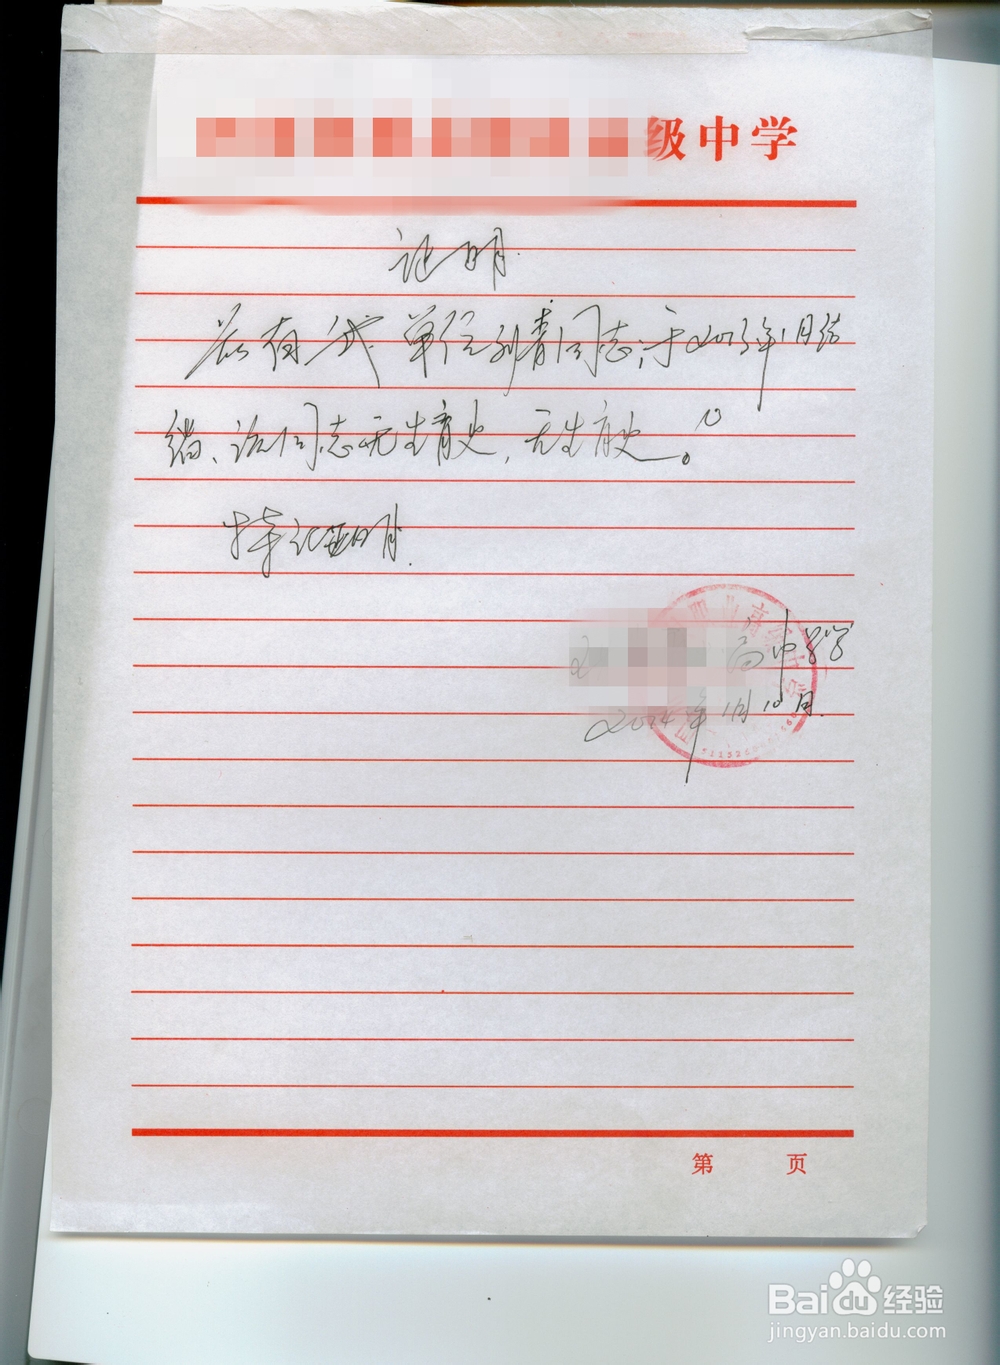 级中学
证明
兹有我单位刘青同志,于2013年1月结
婚、该同志无生育史,无生育史。
特证明.
高中学
2014年1月10日.
第 页
Baidu经验
jingyan.baidu.com